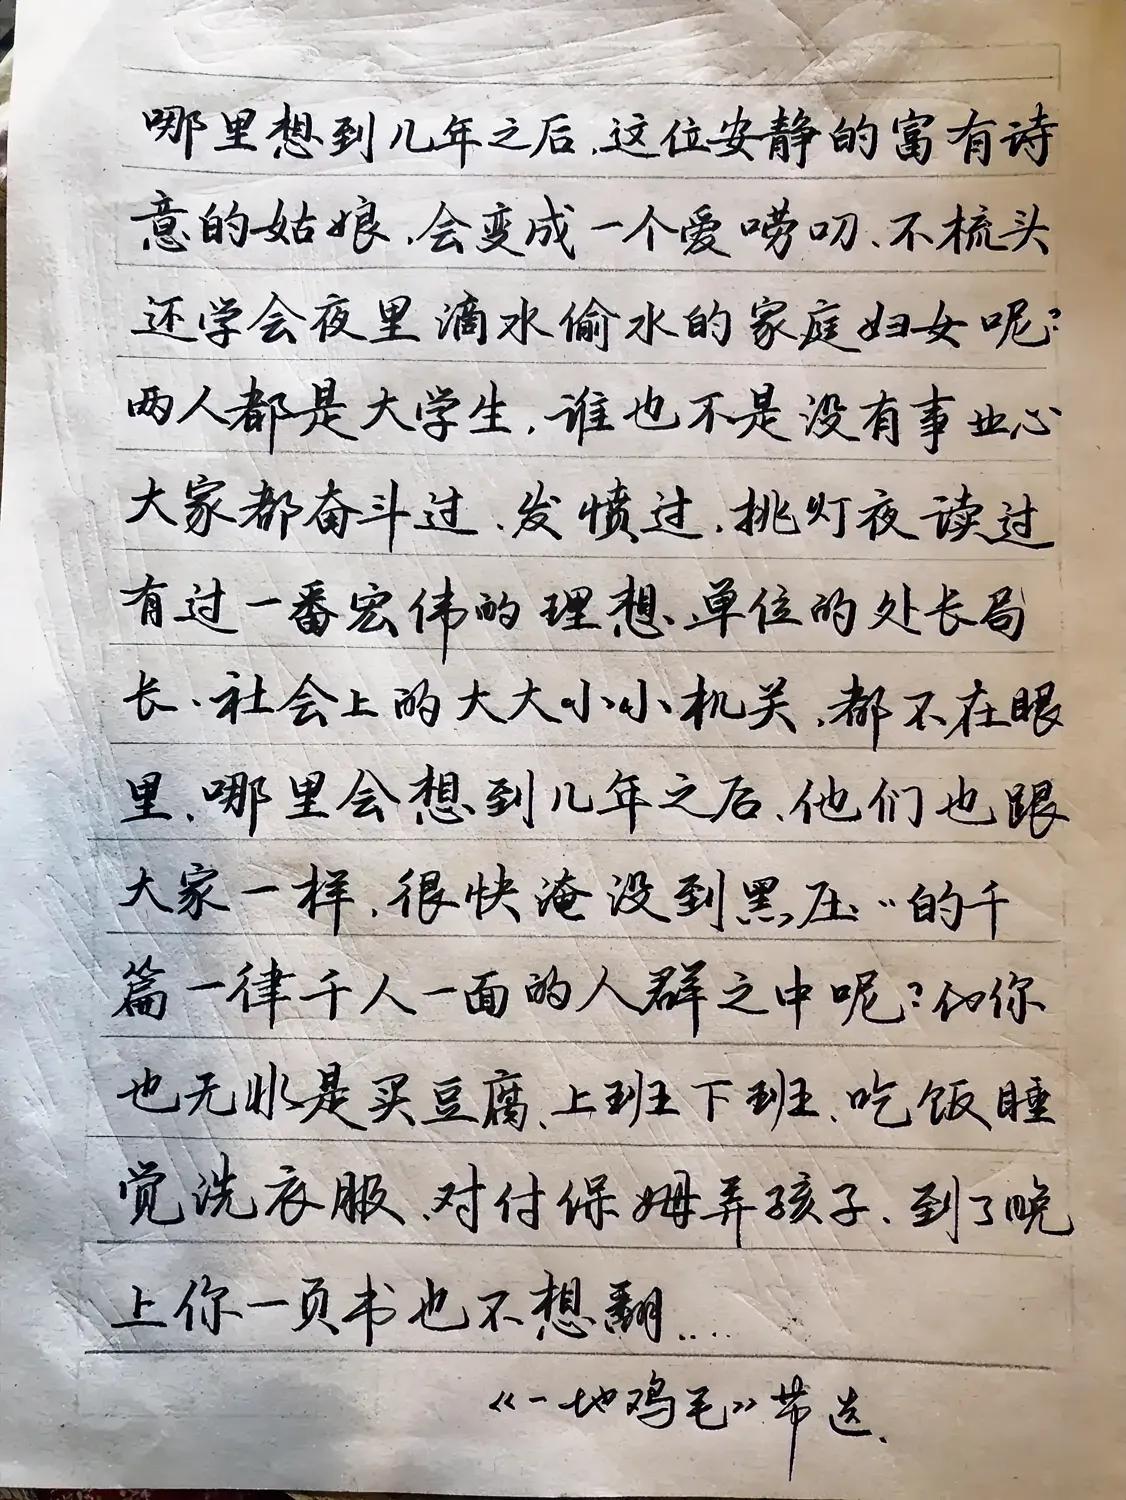 哪里想到几年之后,这位安静的富有诗
意的姑娘,会变成一个爱唠叨、不梳头
还学会夜里滴水偷水的家庭妇女呢?
两人都是大学生,谁也不是没有事业心
大家都奋斗过、发愤过,挑灯夜读过
有过一番宏伟的理想、单位的处长局
长、社会上的大大小小机关,都不在眼
里、哪里会想到几年之后、他们也跟
大家一样,很快淹没到黑压〃的千
篇一律千人一面的人群之中呢?你
也无非是买豆腐、上班下班、吃饭睡
觉洗衣服、对付保姆弄孩子、到了晚
上你一页书也不想翻....
《一地鸡毛》节选.